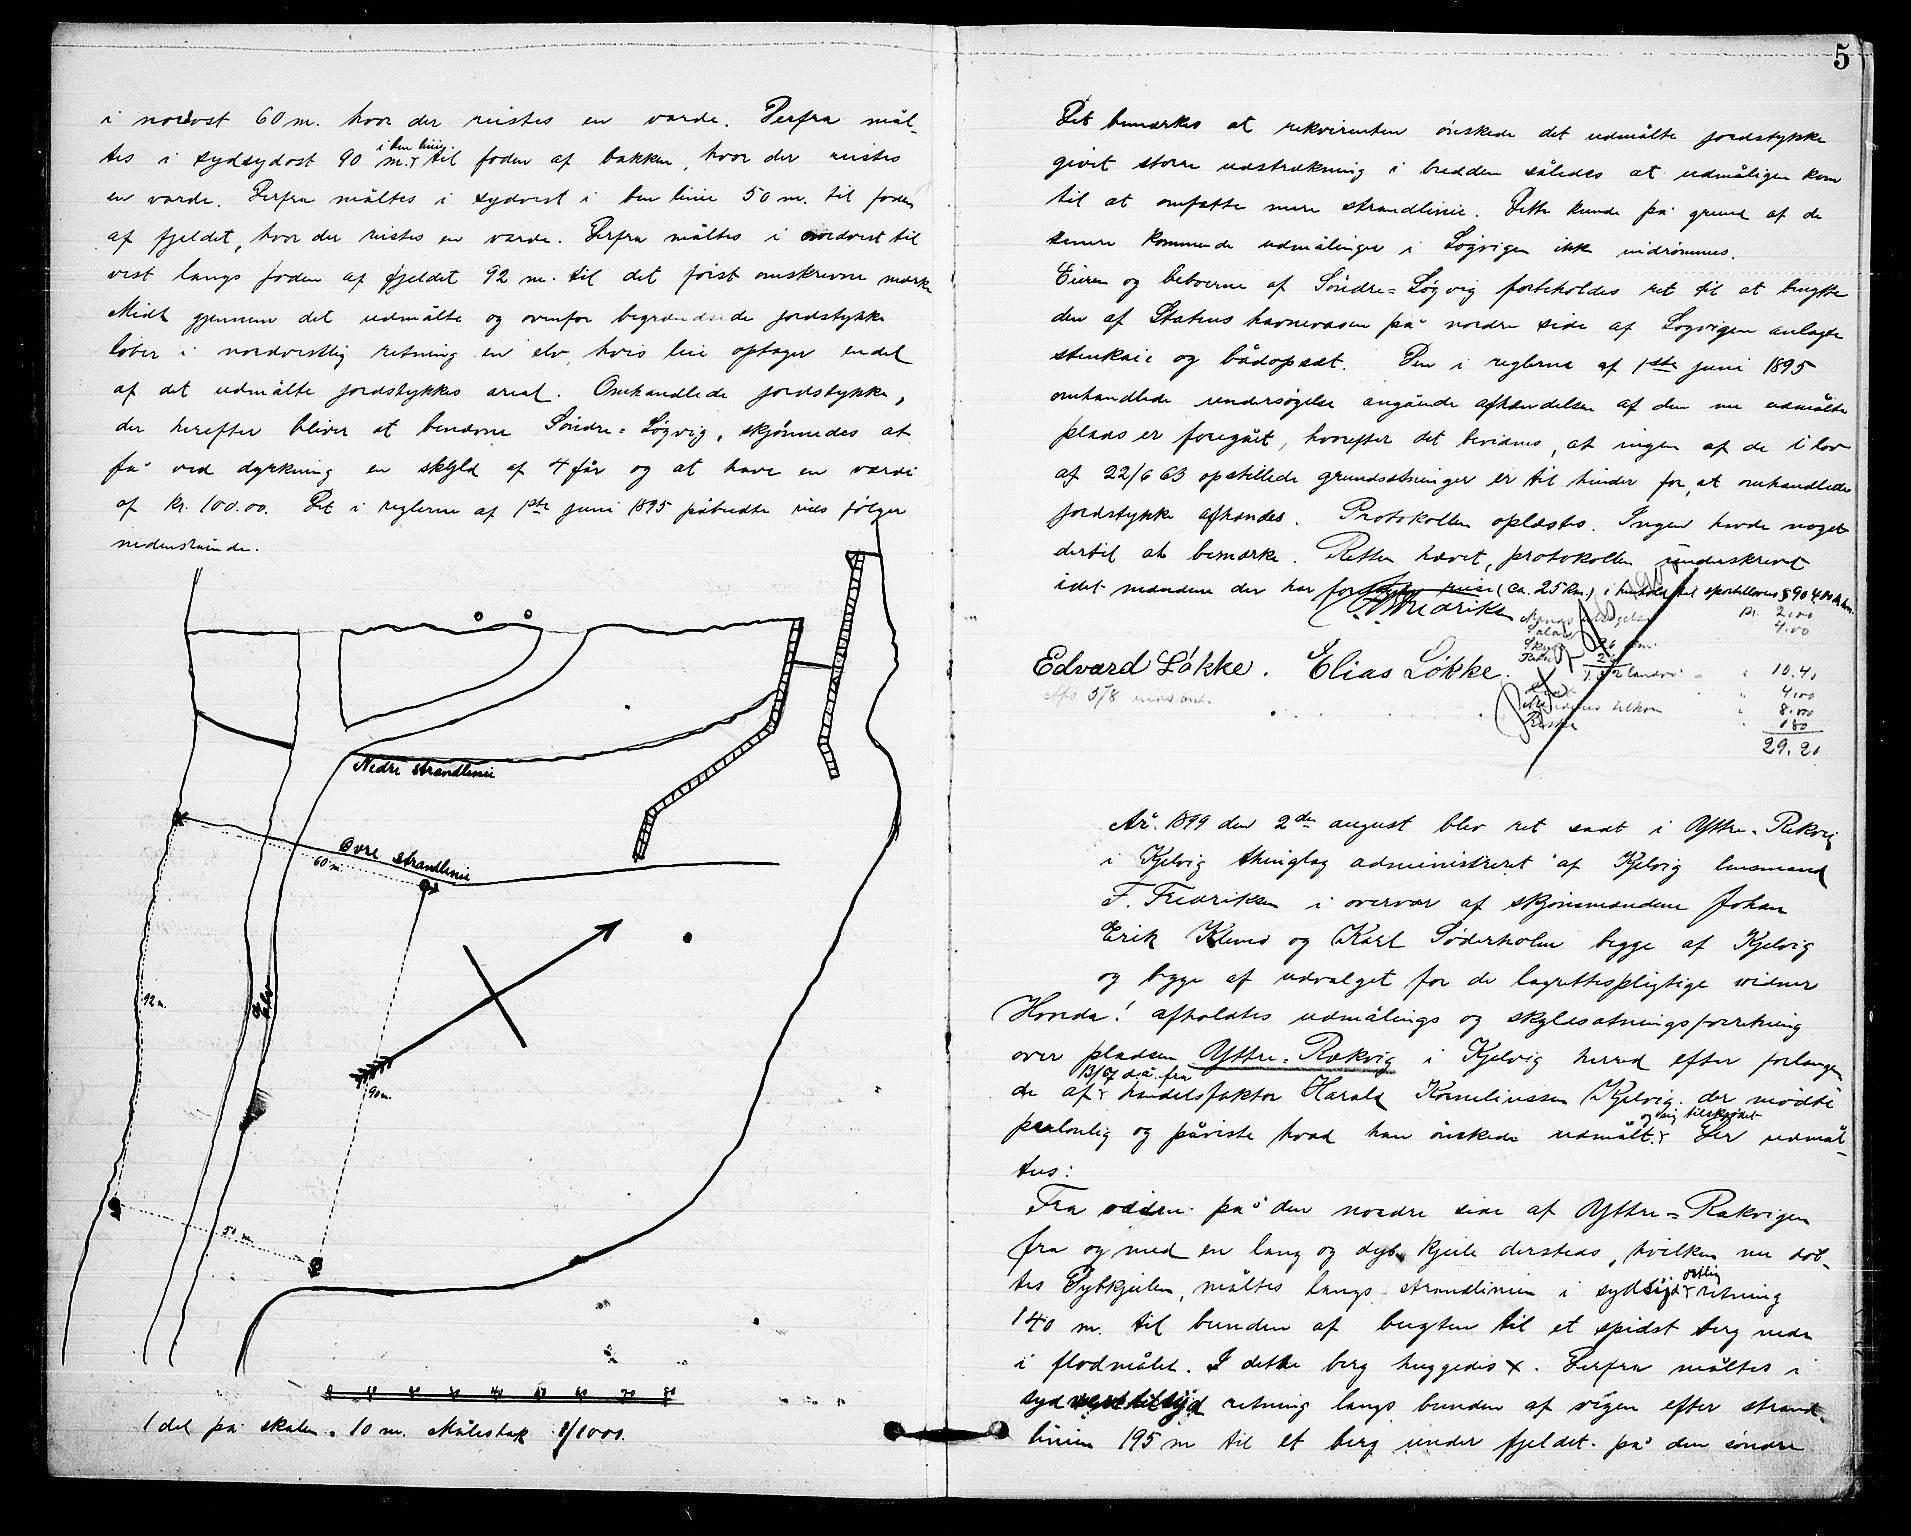 i nordost 60 m. hvor der reistes en varde. Derfra mål-
tes i sydsydost 90 m. i ben linie til foden af bakken, hvor der reistes
en varde. Derfra måltes i sydvest i ben linie 50 m. til foden
af fjeldet, hvor der reistes en varde. Derfra måltes i nordvest til
vest langs foden af fjeldet 92 m. til det først omskrevne mærke
Midt gjennem det udmålte og ovenfor begrændsede jordstykke
løber i nordvestlig retning en elv, hvis leie optager endel
af det udmålte jordstykkes areal. Omhandlede jordstykke,
der herefter bliver at benævne Søndre=Løgvig, skjønnedes at
få ved dyrkning en skyld af 4 får og at have en værdi
af kr. 100.00. Det i reglerne af 1ste juni 1895 påbudte rids følger
nedenstående.
Nedre strandlinie
Øvre strandlinie
60 m.
92 m.
Elv
90 m.
50 m.
0 10 20 30 40 50 60 70 80
1 del på skalen = 10 m. Målestok 1/1000.
5
Det bemærkes at rekvirenten ønskede det udmålte jordstykke
givet større udstrækning i bredden således at udmålingen kom
til at omfatte mere strandlinie. Dette kunde på grund af de
senere kommende udmålinger i Løgvigen ikke indrømmes.
Eieren og beboerne af Søndre=Løgvig forbeholdes ret til at benytte
den af Statens havnevæsen på nordre side af Løgvigen anlagte
stenkaie og bådopsæt. Den i reglerne af 1ste juni 1895
omhandlede undersøgelse angående afhændelsen af den nu udmålte
plads er foregået, hvorefter det bevidnes, at ingen af de i lov
af 22/6 63 opstillede grundsætninger er til hinder for, at omhandlede
jordstykke afhændes. Protokollen oplæstes. Ingen havde noget
dertil at bemærke. Retten hævet, protokollen underskrevet
idet mændene der har (ca. 25 km.) i henhold til sportelloven § 90
Fredriksen
kr. 2.00
4.00
Edvard Løkke. Elias Løkke.
10.40
4.00
8.00
180
29.20
År. 1899 den 2den august blev ret sadt i Yttre=Rekvig
i Kjelvig thinglag administreret af Kjelvig lensmand
F. Fredriksen i overvær af skjønsmændene Johan
Erik Klevio og Karl Søderholm begge af Kjelvig
og begge af udvalget for de lagrettespligtige vidner
Hvorda! afholdtes udmålings og skyldsætningsforretning
over pladsen Yttre=Rækvig i Kjelvig herred efter forlangen
de af 13/07 d.å. fra handelsfaktor Harald Korneliussen Kjelvig. der mødte
personlig og påviste hvad han ønskede udmålt og sig tilskjødet. Der udmål-
tes:
Fra odden på den nordre side af Yttre=Rækvigen
fra og med en lang og dyb kjeile dersteds, hvilken nu døb-
tes Dybkjeilen, måltes langs strandlinien i sydsydøstlig retning
140 m. til bunden af bugten til et spidst berg nede
i flodmålet. I dette berg huggedes x. Derfra måltes i
syd retning langs bunden af vigen efter strand-
linien 195 m til et berg under fjeldet på den søndre